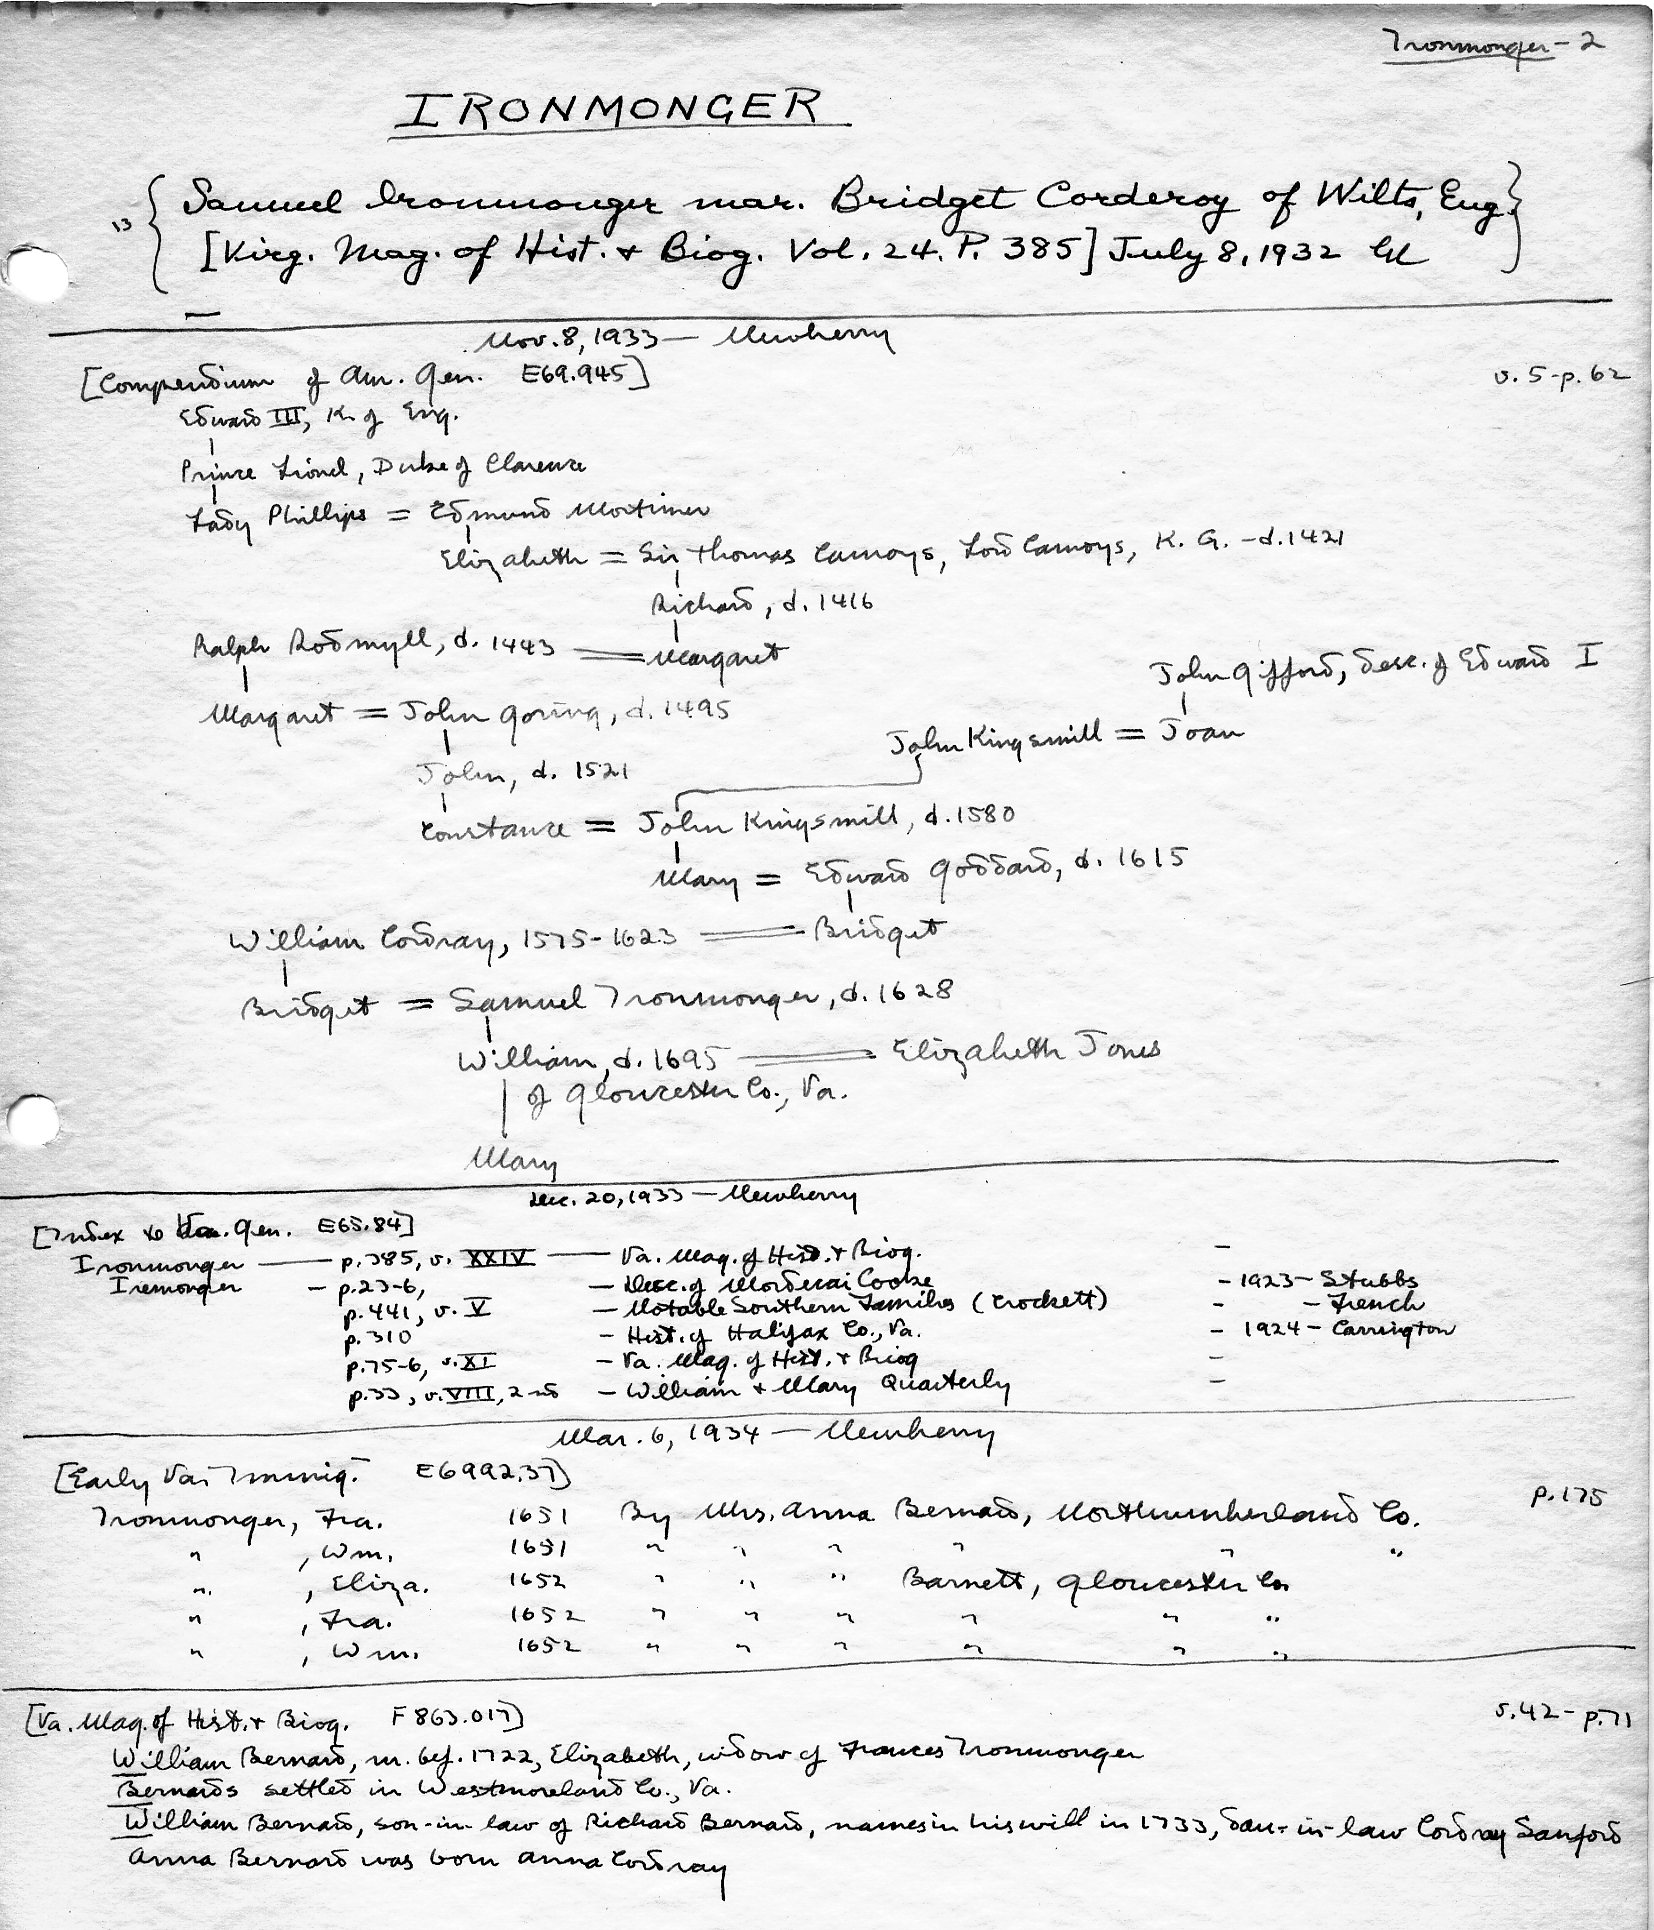 Ironmonger - 2
IRONMONGER
13 { Samuel Ironmonger mar. Bridget Corderoy of Wilts, Eng. }
[Virg. Mag. of Hist. & Biog. Vol. 24. P. 385] July 8, 1932
Nov. 8, 1933 — Newberry
[Compendium of Am. Gen. E69.945] v. 5 - p. 62
Edward III, K. of Eng.
Prince Lionel, Duke of Clarence
Lady Phillips = Edmund Mortimer
Elizabeth = Sir Thomas Camoys, Lord Camoys, K. G. - d. 1421
Richard, d. 1416
Ralph Rodmyll, d. 1443 = Margaret
John Gifford, desc. of Edward I
Margaret = John Goring, d. 1495
John Kingsmill = Joan
John, d. 1521
Constance = John Kingsmill, d. 1580
Mary = Edward Goddard, d. 1615
William Cordray, 1575-1623 = Bridget
Bridget = Samuel Ironmonger, d. 1628
William, d. 1695 = Elizabeth Jones
of Gloucester Co., Va.
Mary
Dec. 20, 1933 — Newberry
[Index to Va. Gen. E65.84]
Ironmonger — p. 385, v. XXIV — Va. Mag. of Hist. & Biog. -
Iremonger - p. 23-6, - Desc. of Mordecai Cooke - 1923 - Stubbs
p. 441, v. V - Notable Southern Families (Crockett) - - French
p. 310 - Hist. of Halifax Co., Va. - 1924 - Carrington
p. 75-6, v. XI - Va. Mag. of Hist. & Biog -
p. 33, v. VIII, 2nd - William & Mary Quarterly -
Mar. 6, 1934 — Newberry
[Early Va. Immig. E6992.37] p. 175
Ironmonger, Fra. 1651 By Mrs. Anna Bernard, Northumberland Co.
" , Wm. 1651 " " " " " "
" , Eliza. 1652 " " " Barnett, Gloucester Co.
" , Fra. 1652 " " " " " "
" , Wm. 1652 " " " " " "
[Va. Mag. of Hist. & Biog. F863.017] v. 42 - p. 71
William Bernard, m. bef. 1722, Elizabeth, widow of Frances Ironmonger
Bernards settled in Westmoreland Co., Va.
William Bernard, son-in-law of Richard Bernard, names in his will in 1733, dau-in-law Cordray Sanford
Anna Bernard was born Anna Cordray